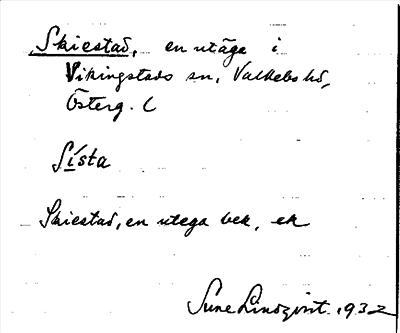 Skiestad, en utäga i
Vikingstads sn, Valkebo hd,
Österg. l
Sísta
Skiestad, en utega bek, ek
Sune Lindqvist. 1932